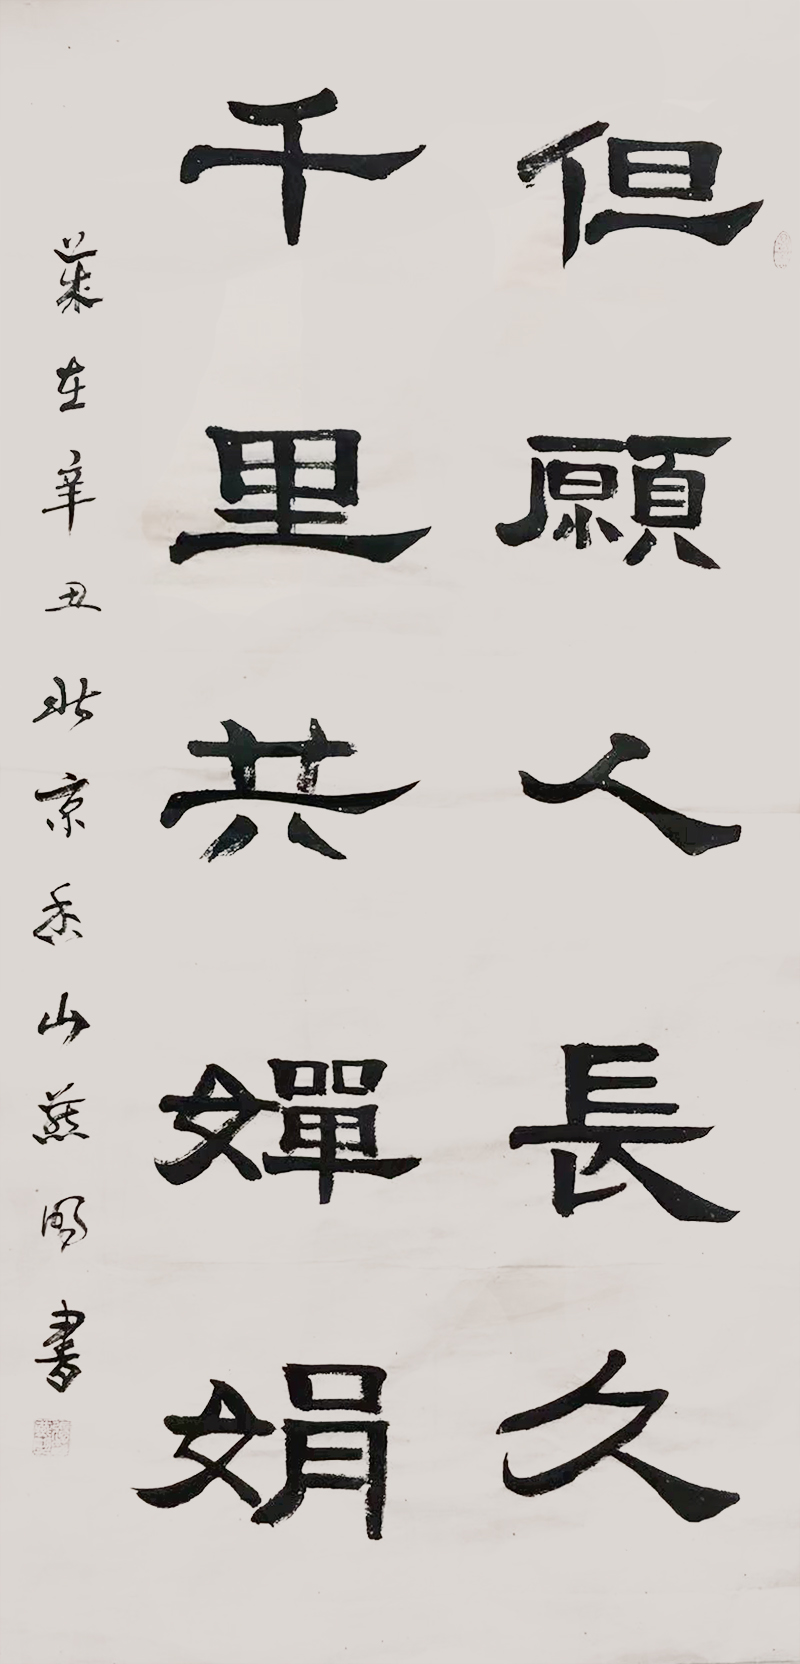 但願人長久
千里共嬋娟
歲在辛丑北京香山燕書